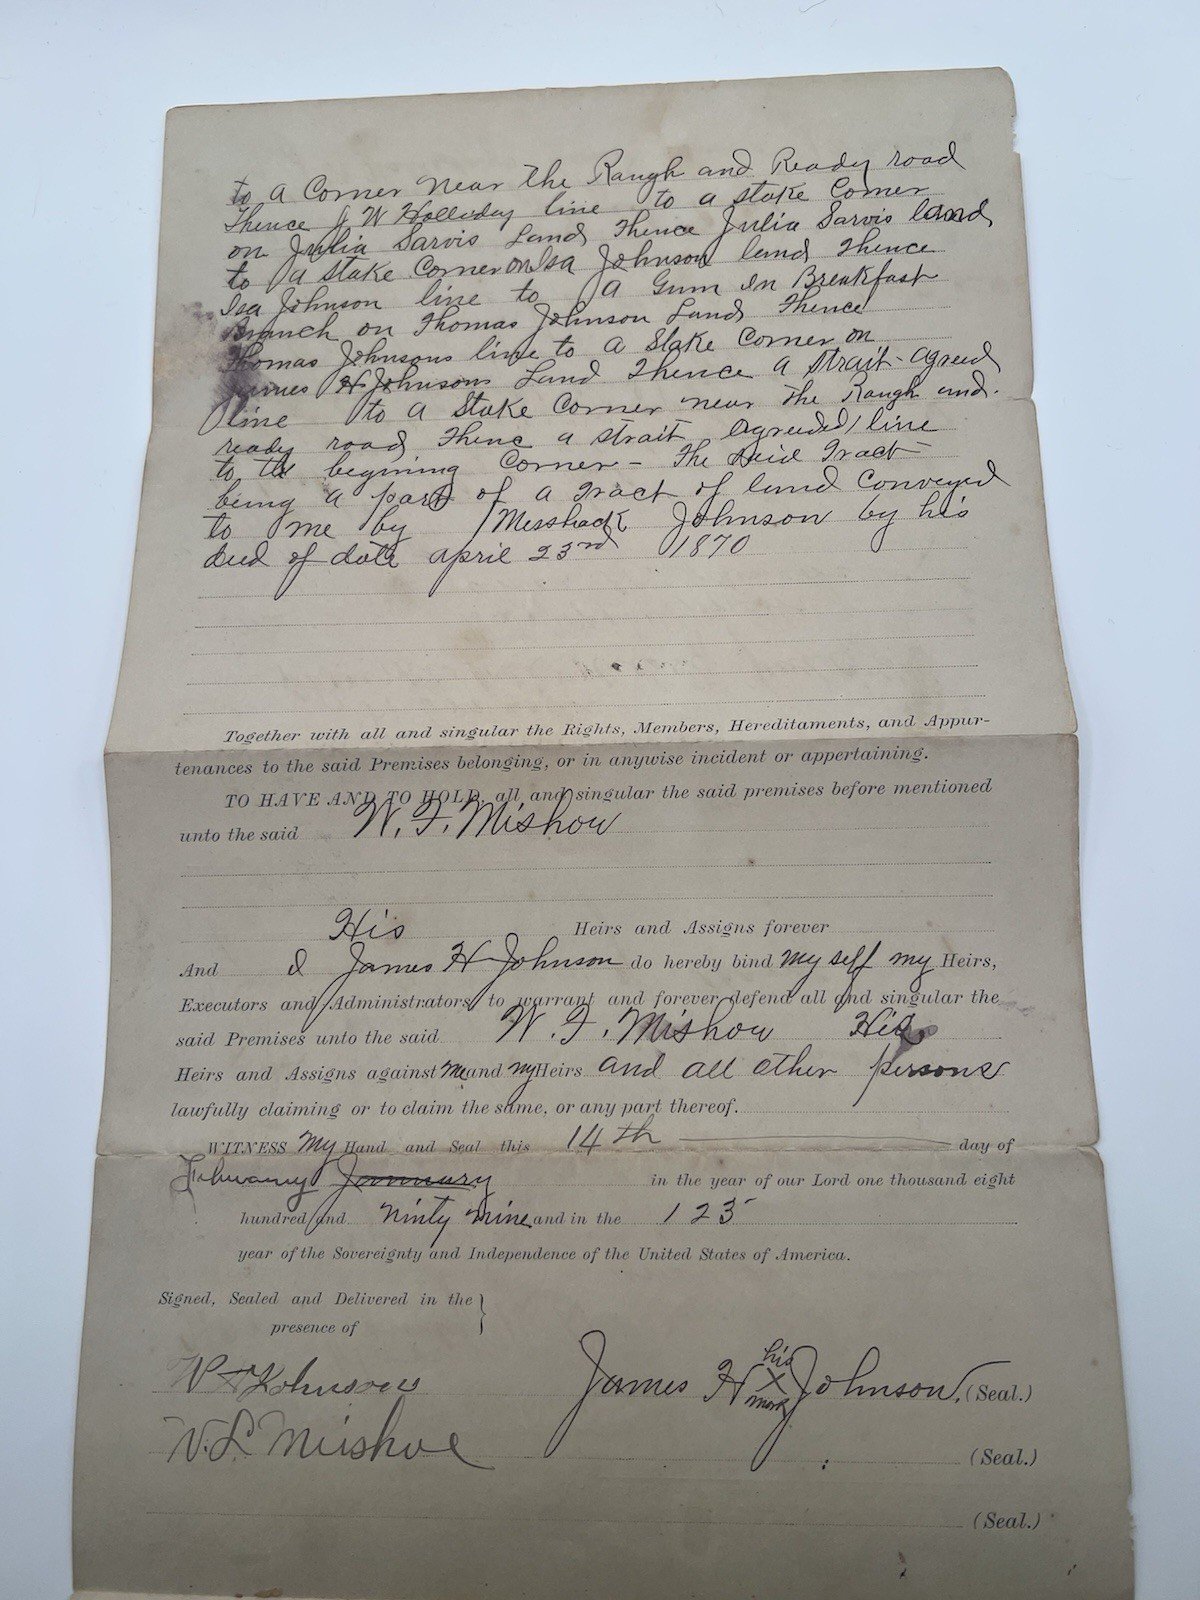 to a Corner near the Rough and Ready road
Thence J W Holliday line to a stake Corner
on Julia Sarvis Land Thence Julia Sarvis land
to a stake Corner on Isa Johnson land Thence
Isa Johnson line to a Gum in Breakfast
Branch on Thomas Johnson Land Thence
Thomas Johnsons line to a Stake Corner on
James H Johnsons Land Thence a strait agreed
line to a Stake Corner near the Rough and
ready road Thenc a strait agreeded line
to the begining Corner - The Said Tract
being a part of a Tract of land Conveyed
to me by Messhack Johnson by his
deed of date april 23rd 1870
Together with all and singular the Rights, Members, Hereditaments, and Appur-
tenances to the said Premises belonging, or in anywise incident or appertaining.
TO HAVE AND TO HOLD, all and singular the said premises before mentioned
unto the said W. F. Mishow
His Heirs and Assigns forever
And I James H Johnson do hereby bind my self my Heirs,
Executors and Administrators, to warrant and forever defend all and singular the
said Premises unto the said W. F. Mishow His
Heirs and Assigns against me and my Heirs and all other persons
lawfully claiming or to claim the same, or any part thereof.
WITNESS My Hand and Seal this 14th day of
January in the year of our Lord one thousand eight
hundred and Ninty Nine and in the 123
year of the Sovereignty and Independence of the United States of America.
Signed, Sealed and Delivered in the }
presence of
Johnson
James H his X mark Johnson. (Seal.)
W. L Mishoe
(Seal.)
(Seal.)